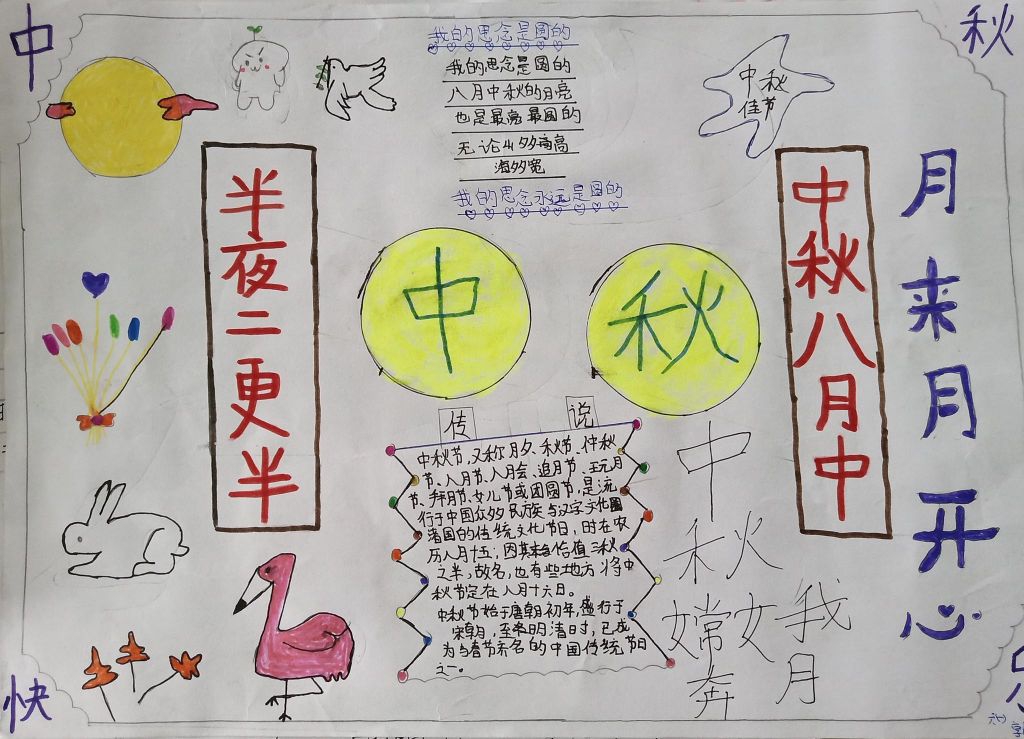 中
秋
我的思念是圆的
我的思念是圆的
八月中秋的月亮
也是最亮最圆的
无论山多高
海多宽
我的思念永远是圆的
中秋
佳节
半夜二更半
中
秋
中秋八月中
月来月开心
传说
中秋节,又称月夕、秋节、仲秋
节、八月节、八月会、追月节、玩月
节、拜月节、女儿节或团圆节,是流
行于中国众多民族与汉字文化圈
诸国的传统文化节日,时在农
历八月十五;因其恰值三秋
之半,故名,也有些地方将中
秋节定在八月十六日。
中秋节始于唐朝初年,盛行于
宋朝,至明清时,已成
为与春节齐名的中国传统节日
之一。
中
秋
嫦娥
奔月
快